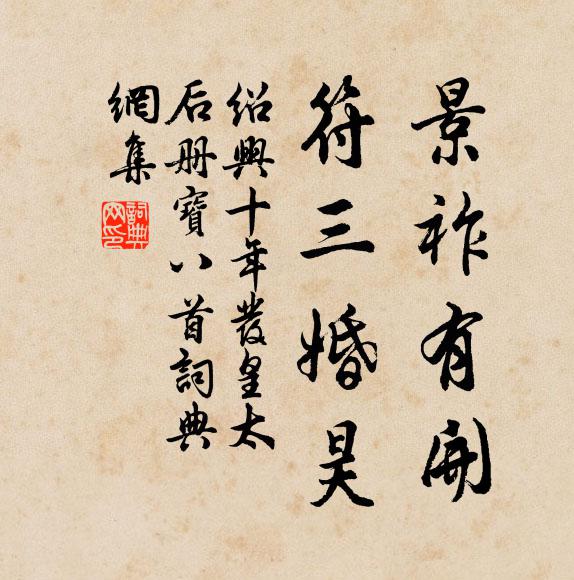 景祚有開
符三婚昊
紹興十年發皇太
后册寶八首詞典
網集
詞典
网印